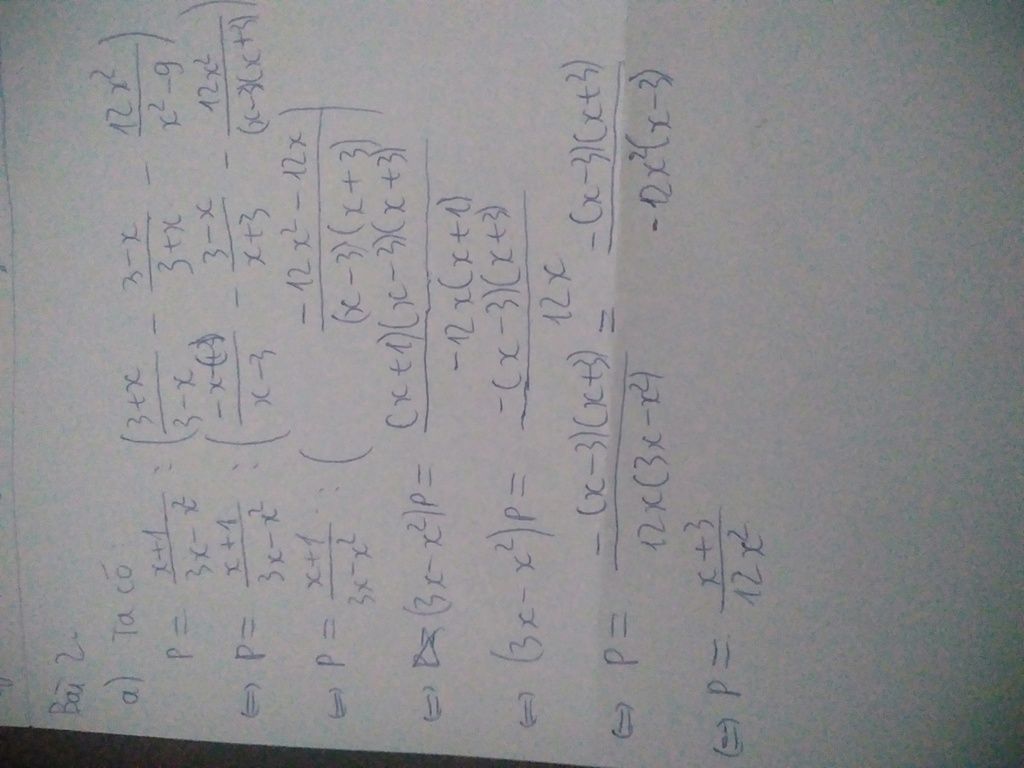 Bài 2
a) Ta có:
P = \frac{x+1}{3x-x^2} : \left(\frac{3+x}{3-x} - \frac{3-x}{3+x} - \frac{12x^2}{x^2-9}\right)
⇔ P = \frac{x+1}{3x-x^2} : \left(\frac{-x-3}{x-3} - \frac{3-x}{x+3} - \frac{12x^2}{(x-3)(x+3)}\right)
⇔ P = \frac{x+1}{3x-x^2} : \left(\frac{-12x^2-12x}{(x-3)(x+3)}\right)
⇔ (3x-x^2)P = \frac{(x+1)(x-3)(x+3)}{-12x(x+1)}
⇔ (3x-x^2)P = \frac{-(x-3)(x+3)}{12x}
⇔ P = \frac{-(x-3)(x+3)}{12x(3x-x^2)} = \frac{-(x-3)(x+3)}{-12x^2(x-3)}
⇔ P = \frac{x+3}{12x^2}